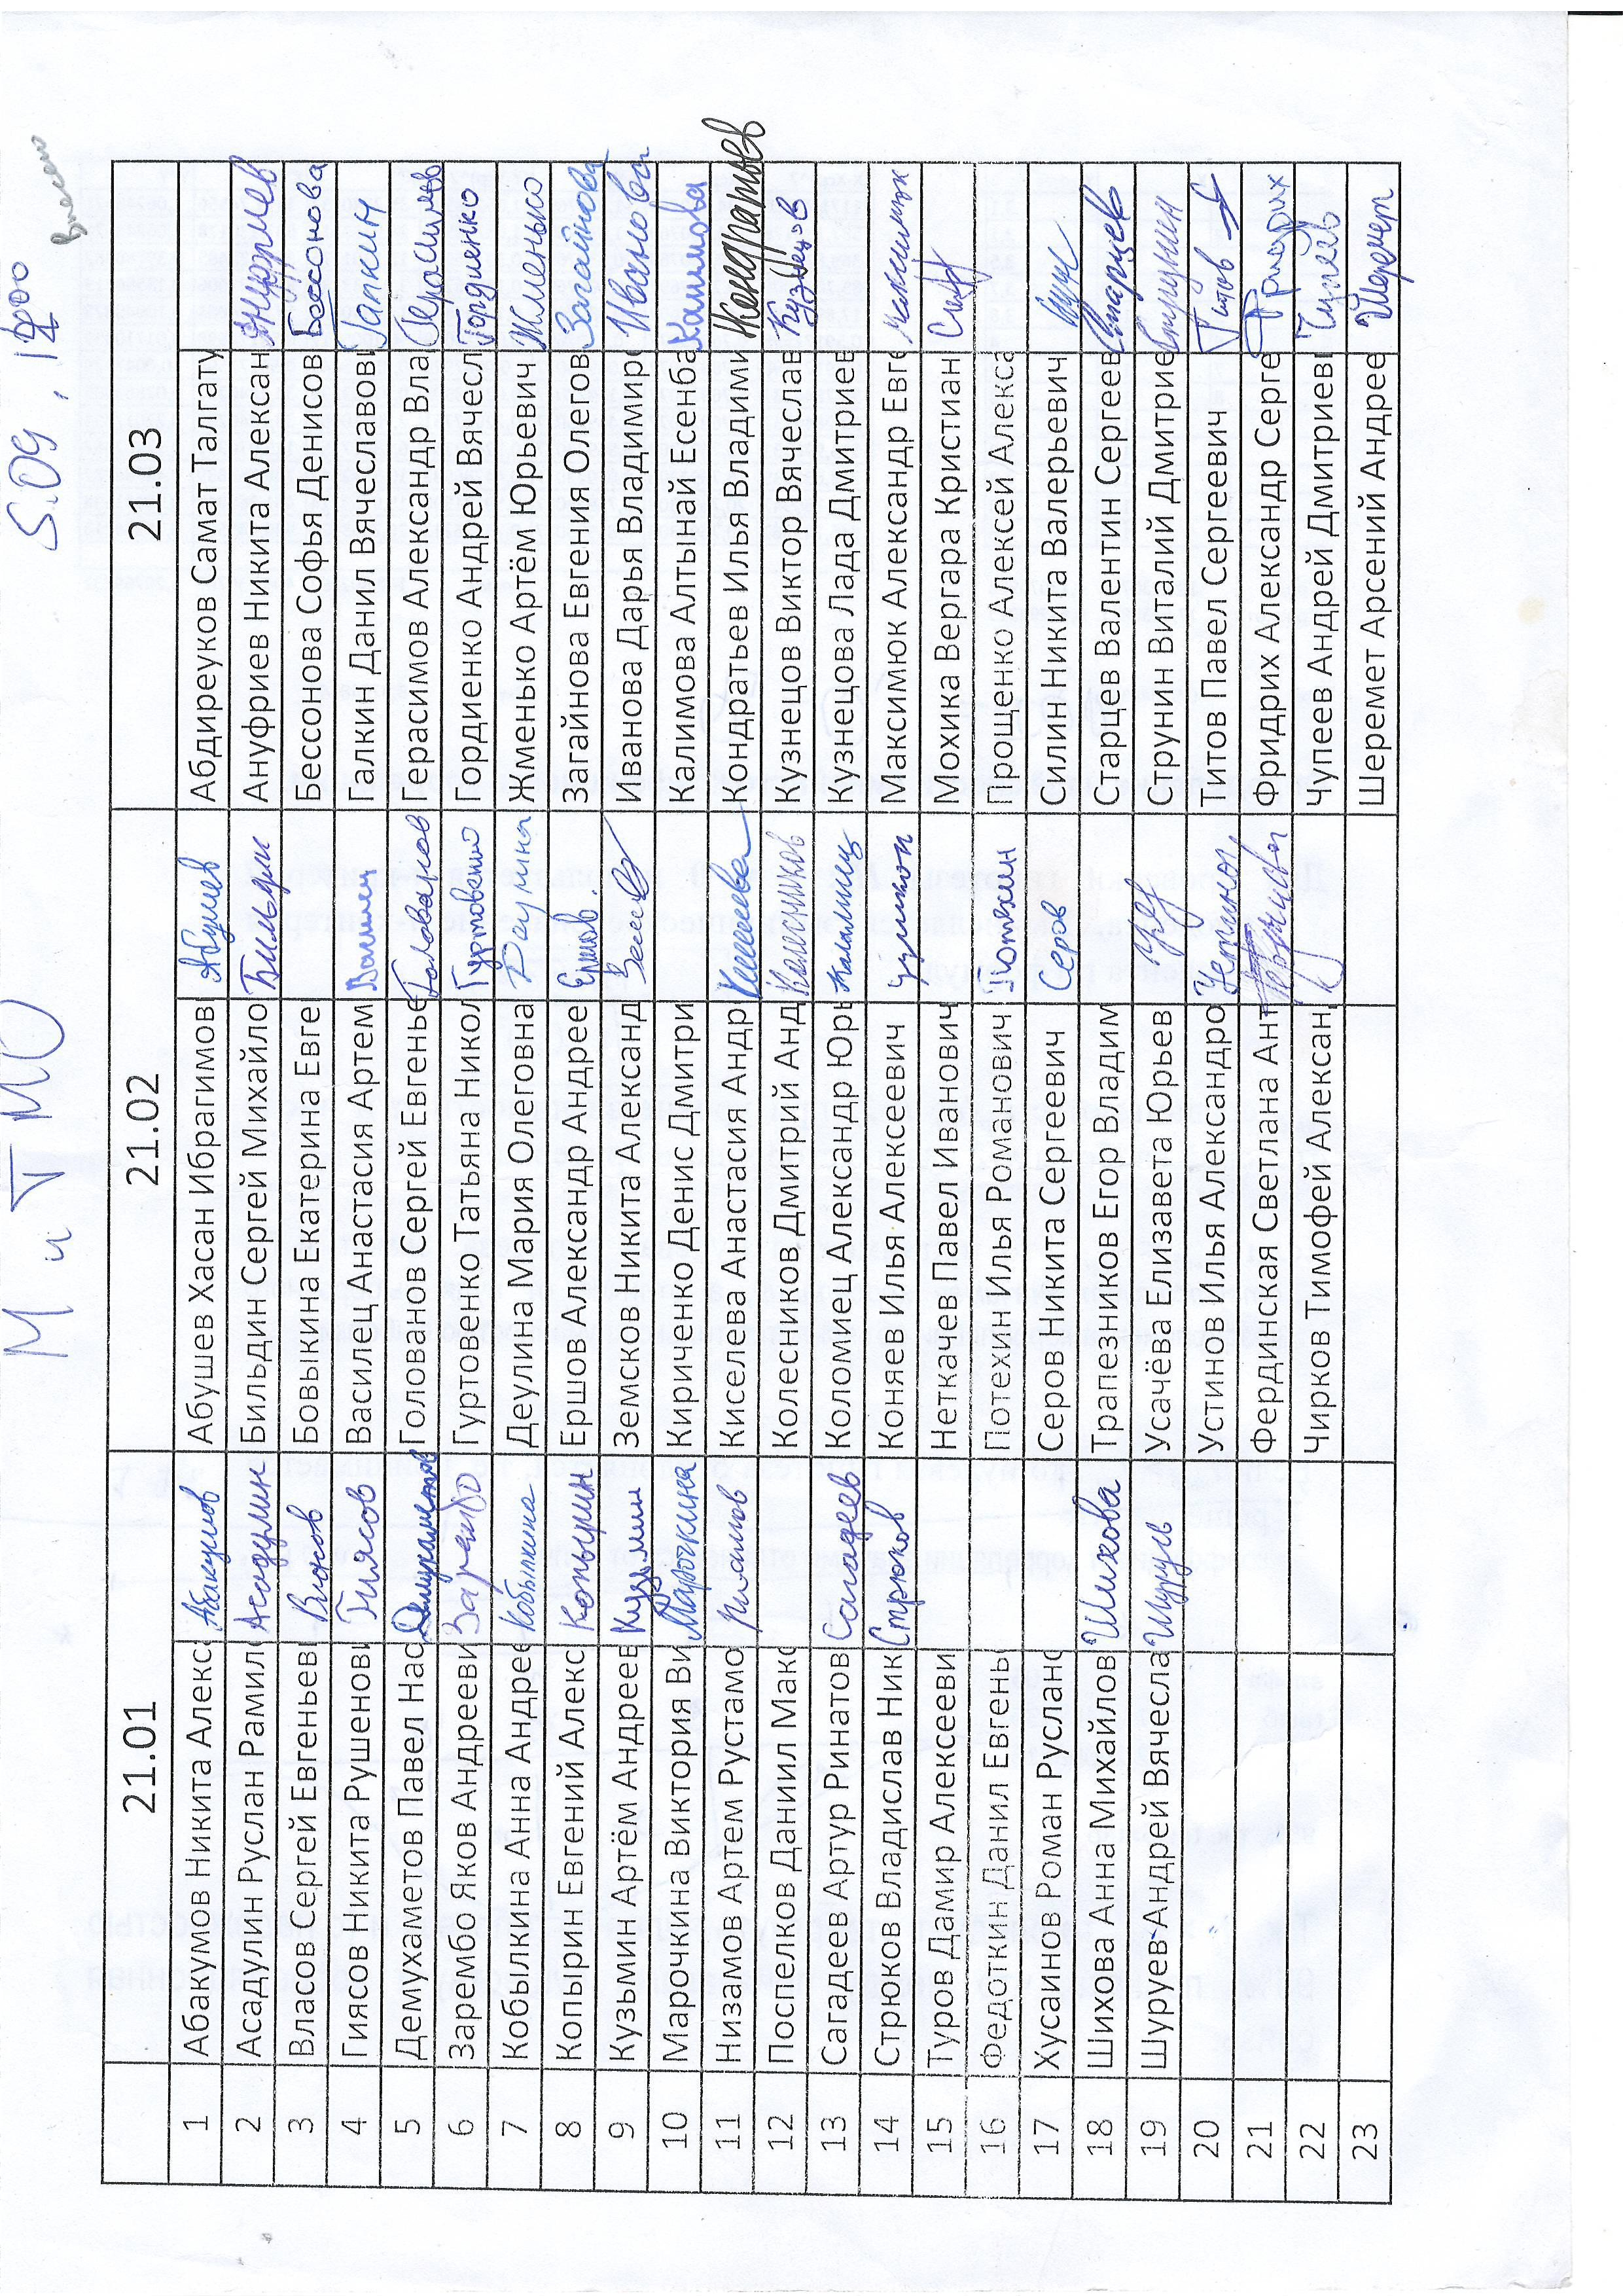 М и ТМО 5.09, 12:00
Внесено
21.01 21.02 21.03
1 Абакумов Никита Алекса Абакумов Абушев Хасан Ибрагимов Абушев Абдиреуков Самат Талгату
2 Асадулин Руслан Рамил Асадулин Бильдин Сергей Михайло Бильдин Ануфриев Никита Алексан Ануфриев
3 Власов Сергей Евгеньев Власов Бовыкина Екатерина Евге Бессонова Софья Денисов Бессонова
4 Гиясов Никита Рушенов Гиясов Василец Анастасия Артем Василец Галкин Данил Вячеславов Галкин
5 Демухаметов Павел Нас Демухаметов Голованов Сергей Евгенье Голованов Герасимов Александр Вла Герасимов
6 Зарембо Яков Андрееви Зарембо Гуртовенко Татьяна Никол Гуртовенко Гордиенко Андрей Вячесл Гордиенко
7 Кобылкина Анна Андрее Кобылкина Деулина Мария Олеговна Деулина Жменько Артём Юрьевич Жменько
8 Копырин Евгений Алекс Копырин Ершов Александр Андрее Ершов. Загайнова Евгения Олегов Загайнова
9 Кузьмин Артём Андреев Кузьмин Земсков Никита Александ Иванова Дарья Владимир Иванова
10 Марочкина Виктория Ви Марочкина Кириченко Денис Дмитри Калимова Алтынай Есенба Калимова
11 Низамов Артем Рустамо Низамов Киселева Анастасия Андр Киселева Кондратьев Илья Владими Кондратьев
12 Поспелков Даниил Макс Колесников Дмитрий Анд Колесников Кузнецов Виктор Вячеслав Кузнецов
13 Сагадеев Артур Ринатов Сагадеев Коломиец Александр Юрь Коломиец Кузнецова Лада Дмитриев
14 Стрюков Владислав Ник Стрюков Коняев Илья Алексеевич Максимюк Александр Евге Максимюк
15 Туров Дамир Алексееви Неткачев Павел Иванович Мохика Вергара Кристиан
16 Федоткин Данил Евгень Потехин Илья Романович Потехин Прощенко Алексей Алекса
17 Хусаинов Роман Руслано Серов Никита Сергеевич Серов Силин Никита Валерьевич
18 Шихова Анна Михайлов Шихова Трапезников Егор Владим Старцев Валентин Сергеев Старцев
19 Шуруев Андрей Вячесла Шуруев Усачёва Елизавета Юрьев Струнин Виталий Дмитрие Струнин
20 Устинов Илья Александро Устинов Титов Павел Сергеевич Титов
21 Фердинская Светлана Ант Фридрих Александр Серге Фридрих
22 Чирков Тимофей Алексан Чупеев Андрей Дмитриев Чупеев
23 Шеремет Арсений Андрее Шеремет